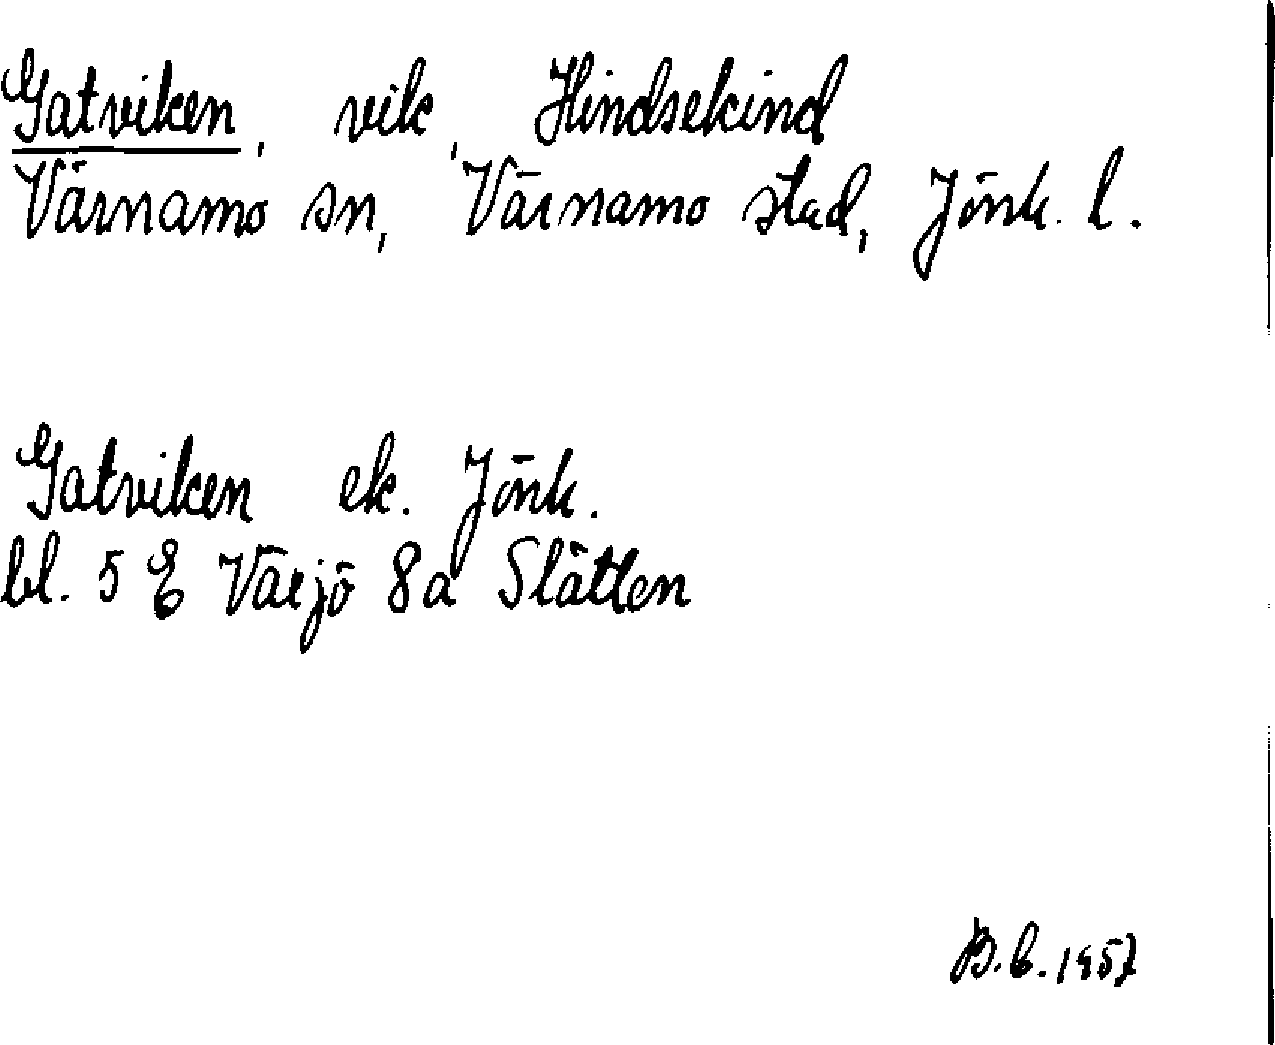 Gatviken, vik, Hindsekind
Värnamo sn, Värnamo stad, Jönk. l.
Gatviken ek. Jönk.
bl. 5 E Växjö 8a Slätten
B.b. 1957